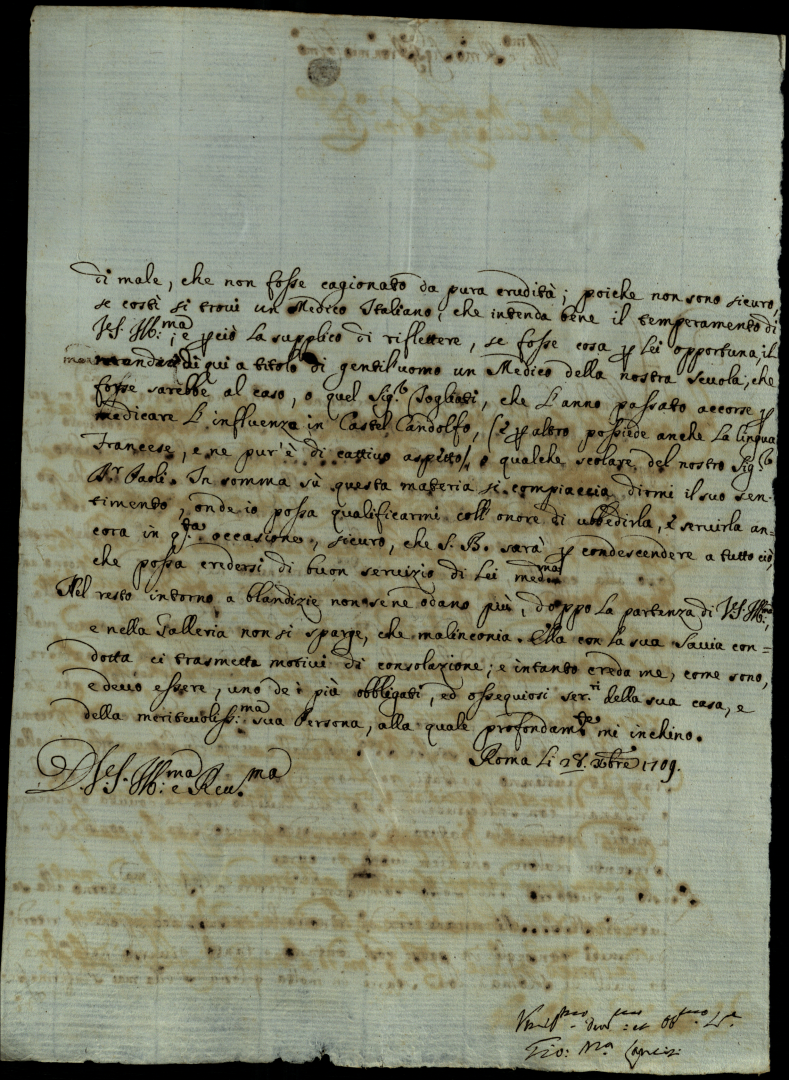 di male, che non fosse cagionato da pura crudità; poiche non sono sicuro,
se costì si trovi un Medico Italiano, che intenda bene il temperamento di
VS. Ill:ma; e perciò la supplico di riflettere, se fosse cosa per lei opportuna, il
mandar di quì a titolo di gentiluomo un Medico della nostra scuola, che
forse sarebbe al caso, o quel Sig.r Pogliati, che l'anno passato accorse per
medicare l'influenza in Castel Gandolfo, (e per altro possiede anche la lingua
Francese, e ne pur'è di cattivo aspetto/, o qualche scolare del nostro Sig.r
D.r Paoli. In somma sù questa materia si compiaccia dirmi il suo sen-
timento, onde io possa qualificarmi coll'onore di ubbedirla, e servirla an-
cora in q.ta occasione, sicuro, che S. B. sarà per condescendere a tutto ciò,
che possa credersi di buon servizio di lei medma
Nel resto intorno a blandizie non se ne odano più, doppo la partenza di VS. Ill:ma,
e nella Galleria non si sparge, che malinconia. Ella con la sua savia con=
dotta ci trasmetta motivi di consolazione; e intanto creda me, come sono,
e devo essere, uno de i più obbligati, ed ossequiosi ser.ri della sua casa, e
della meritevoliss:ma sua Persona, alla quale profondam.te mi inchino.
Roma li 28. Xbre 1709.
D. VS. Ill:ma e Rev.ma
Gio: M.a Lancisi